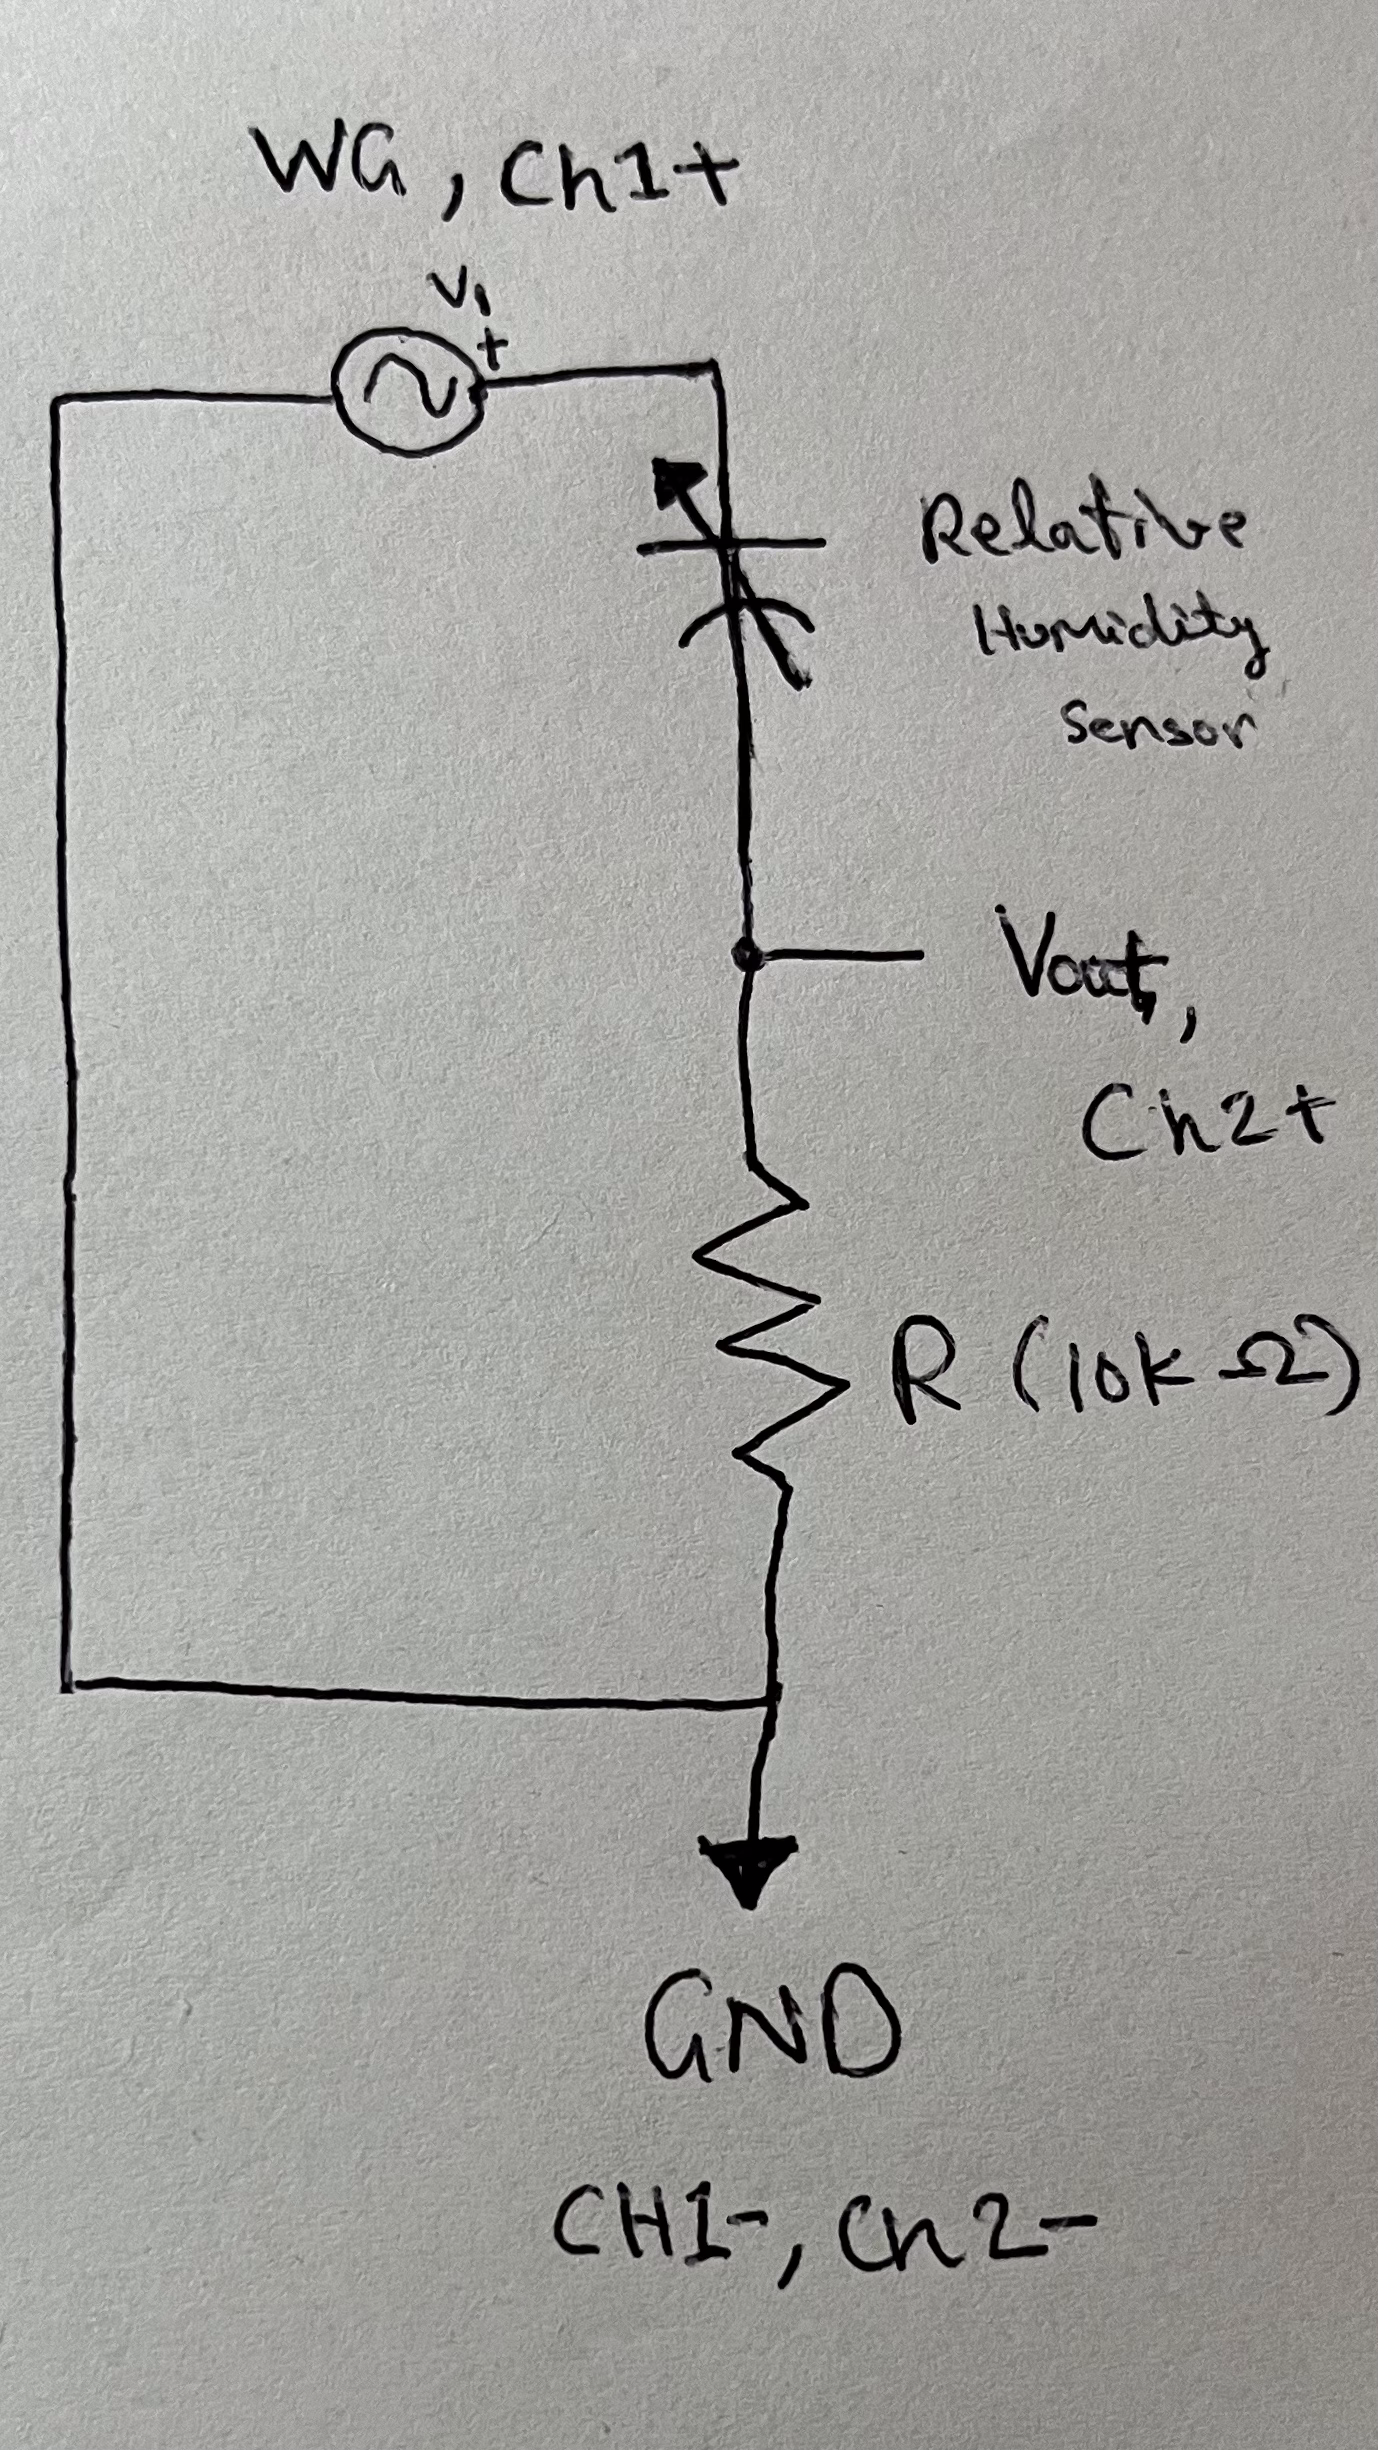 WG, Ch1+
V1
+
Relative
Humidity
Sensor
Vout,
Ch2+
R (10k Ω)
GND
CH1-, Ch2-